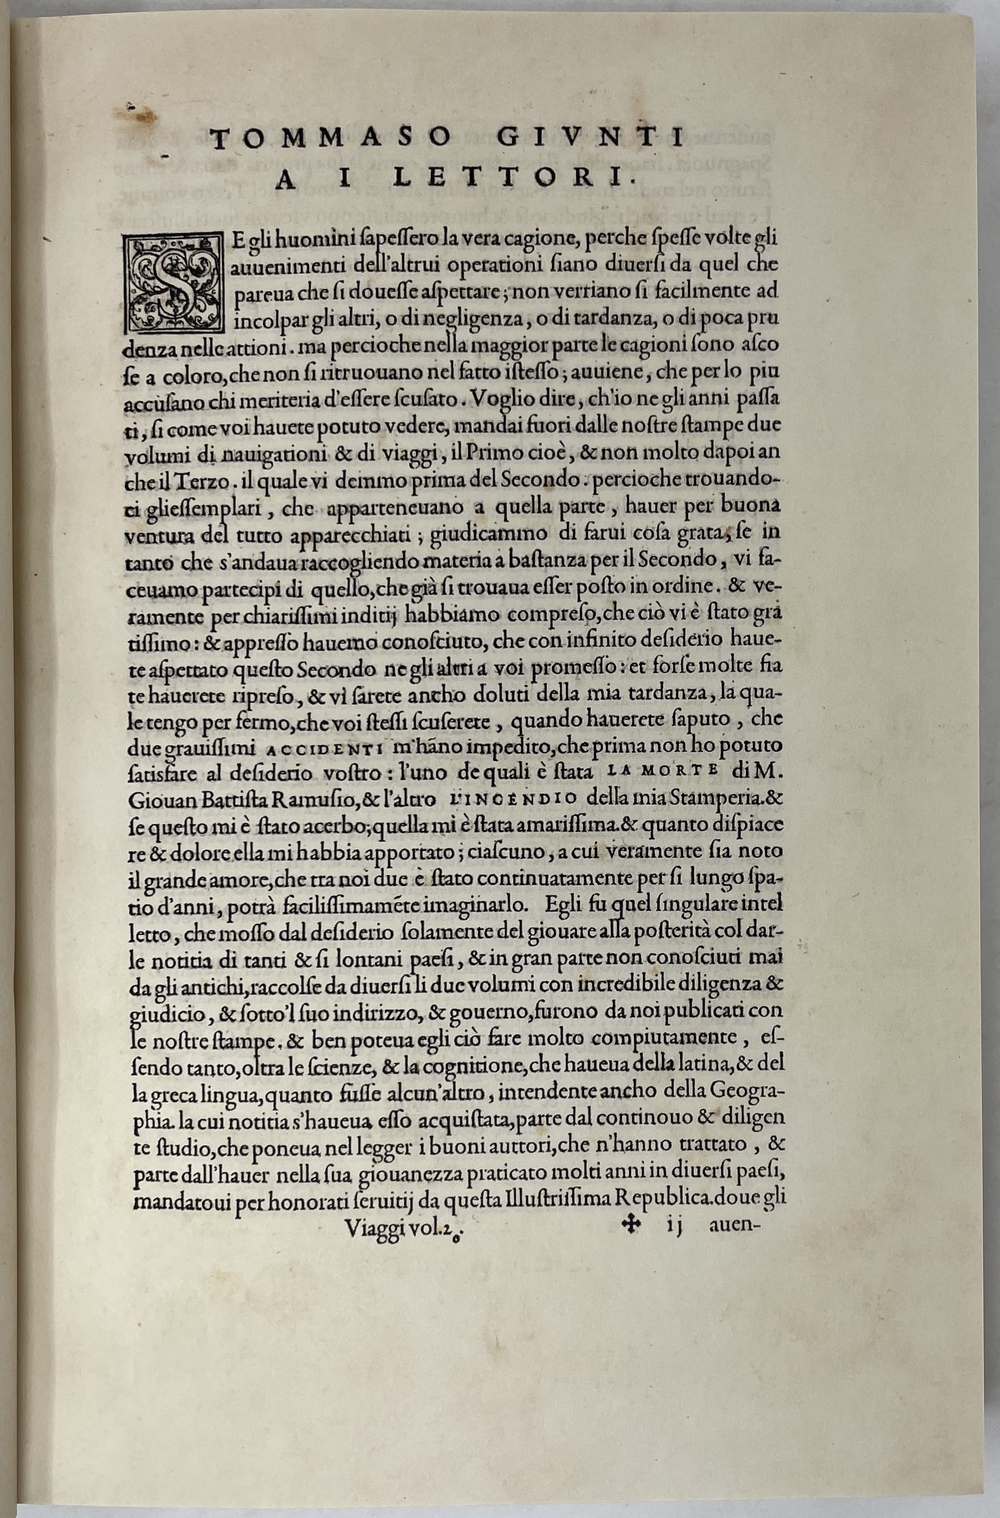 TOMMASO GIVNTI
A I LETTORI.
SE gli huomini ſapeſſero la vera cagione, perche ſpeſſe volte gli
auuenimenti dell'altrui operationi ſiano diuerſi da quel che
pareua che ſi doueſſe aſpettare; non verriano ſi facilmente ad
incolpar gli altri, o di negligenza, o di tardanza, o di poca pru
denza nelle attioni. ma percioche nella maggior parte le cagioni ſono aſco
ſe a coloro, che non ſi ritruouano nel fatto iſteſſo; auuiene, che per lo piu
accuſano chi meriteria d'eſſere ſcuſato. Voglio dire, ch'io ne gli anni paſſa
ti, ſi come voi hauete potuto vedere, mandai fuori dalle noſtre ſtampe due
volumi di nauigationi & di viaggi, il Primo cioè, & non molto dapoi an
che il Terzo. il quale vi demmo prima del Secondo. percioche trouando-
ci glieſſemplari, che apparteneuano a quella parte, hauer per buona
ventura del tutto apparecchiati; giudicammo di farui coſa grata, ſe in
tanto che s'andaua raccogliendo materia a baſtanza per il Secondo, vi fa-
ceuamo partecipi di quello, che già ſi trouaua eſſer poſto in ordine. & ve-
ramente per chiariſſimi inditij habbiamo compreſo, che ciò vi è ſtato gra
tiſſimo: & appreſſo hauemo conoſciuto, che con infinito deſiderio haue-
te aſpettato queſto Secondo ne gli altri a voi promeſſo: et forſe molte fia
te hauerete ripreſo, & vi ſarete ancho doluti della mia tardanza, la qua-
le tengo per fermo, che voi ſteſſi ſcuſerete, quando hauerete ſaputo, che
due grauiſſimi ACCIDENTI m'hāno impedito, che prima non ho potuto
ſatisfare al deſiderio voſtro: l'uno de quali è ſtata LA MORTE di M.
Giouan Battiſta Ramuſio, & l'altro L'INCENDIO della mia Stamperia. &
ſe queſto mi è ſtato acerbo; quella mi è ſtata amariſſima. & quanto diſpiace
re & dolore ella mi habbia apportato; ciaſcuno, a cui veramente ſia noto
il grande amore, che tra noi due è ſtato continuatamente per ſi lungo ſpa-
tio d'anni, potrà faciliſſimamēte imaginarlo. Egli fu quel ſingulare intel
letto, che moſſo dal deſiderio ſolamente del giouare alla poſterità col dar-
le notitia di tanti & ſi lontani paeſi, & in gran parte non conoſciuti mai
da gli antichi, raccolſe da diuerſi li due volumi con incredibile diligenza &
giudicio, & ſotto'l ſuo indirizzo, & gouerno, furono da noi publicati con
le noſtre ſtampe. & ben poteua egli ciò fare molto compiutamente, eſ-
ſendo tanto, oltra le ſcienze, & la cognitione, che haueua della latina, & del
la greca lingua, quanto fuſſe alcun'altro, intendente ancho della Geogra-
phia. la cui notitia s'haueua eſſo acquiſtata, parte dal continouo & diligen
te ſtudio, che poneua nel legger i buoni auttori, che n'hanno trattato, &
parte dall'hauer nella ſua giouanezza praticato molti anni in diuerſi paeſi,
mandatoui per honorati ſeruitij da queſta Illuſtriſſima Republica. doue gli
Viaggi vol.2°. ✠ ij auen-